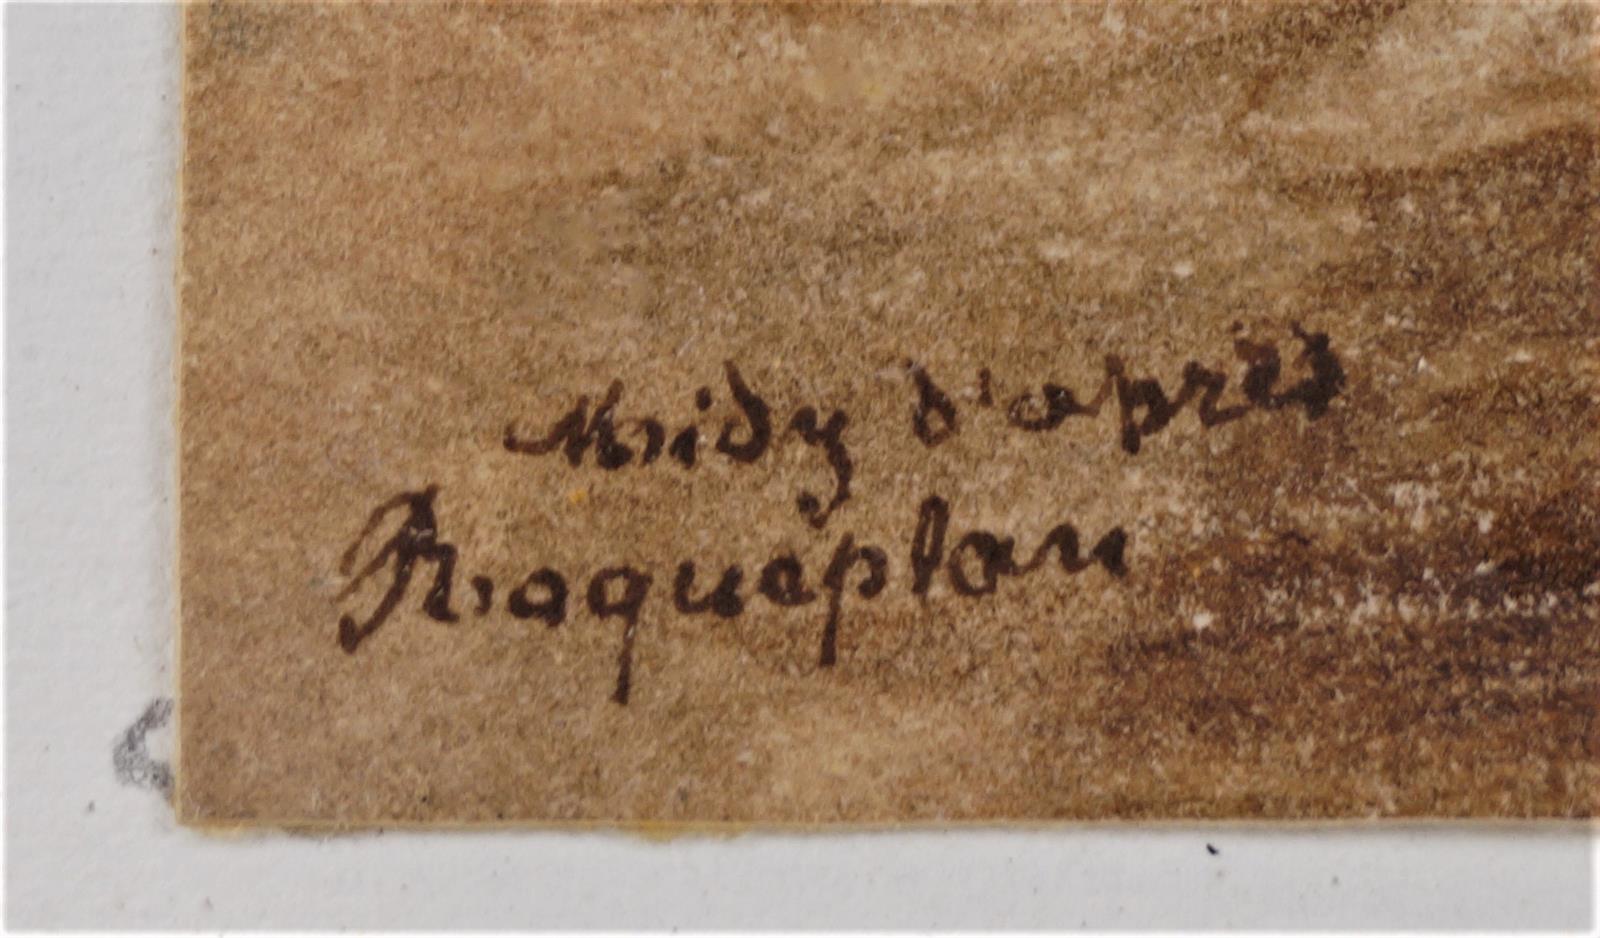 Midy d'après
Roqueplan